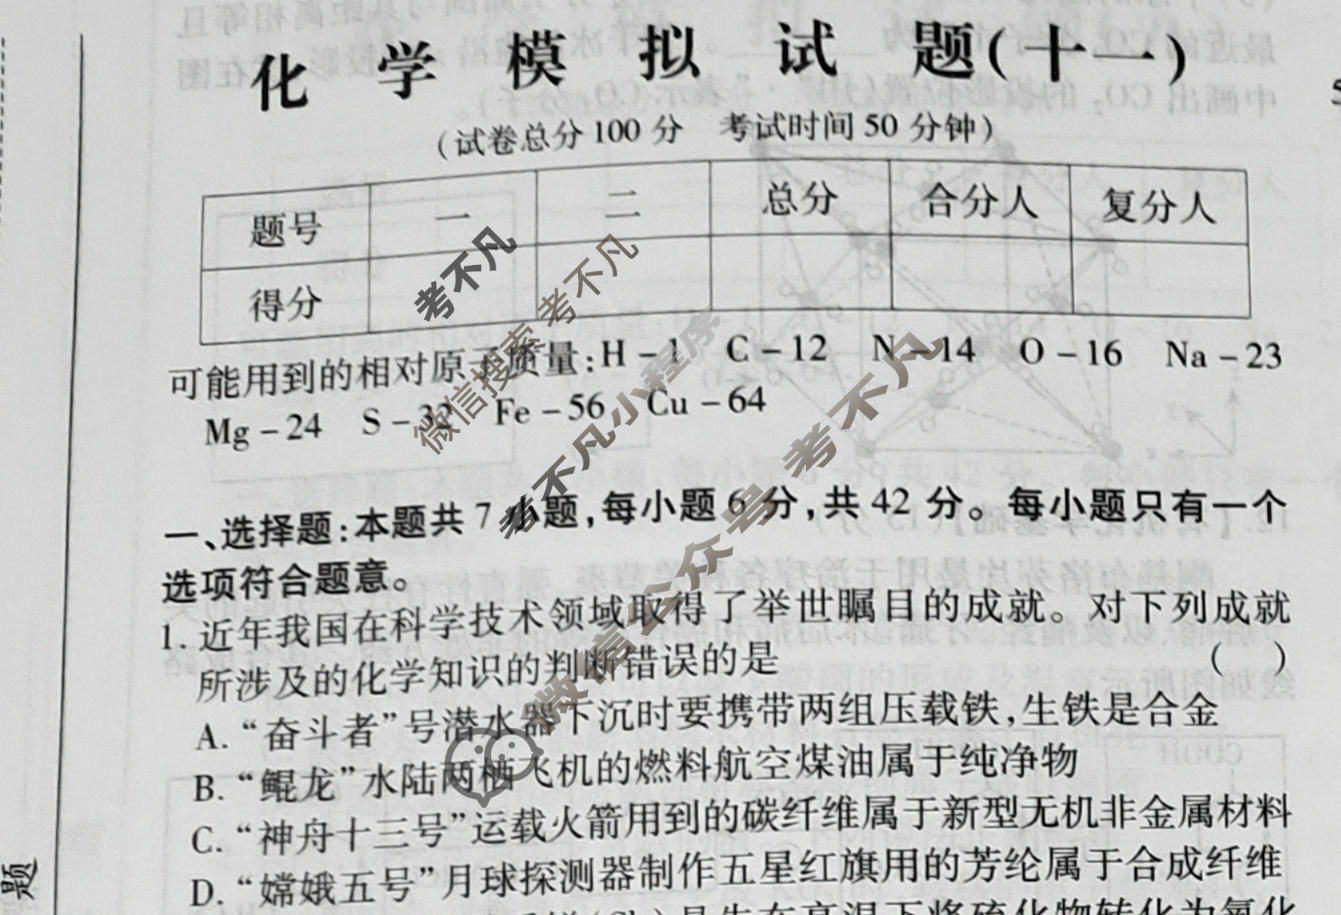 化学模拟试题(十一)
(试卷总分 100 分 考试时间 50 分钟)
题号 一 二 总分 合分人 复分人
得分
可能用到的相对原子质量:H-1 C-12 N-14 O-16 Na-23
Mg-24 S-32 Fe-56 Cu-64
一、选择题:本题共 7 小题,每小题 6 分,共 42 分。每小题只有一个
选项符合题意。
1. 近年我国在科学技术领域取得了举世瞩目的成就。对下列成就
所涉及的化学知识的判断错误的是 ( )
A. “奋斗者”号潜水器下沉时要携带两组压载铁,生铁是合金
B. “鲲龙”水陆两栖飞机的燃料航空煤油属于纯净物
C. “神舟十三号”运载火箭用到的碳纤维属于新型无机非金属材料
D. “嫦娥五号”月球探测器制作五星红旗用的芳纶属于合成纤维
题
考不凡
微信搜索 考不凡
考不凡小程序
微信公众号 考不凡